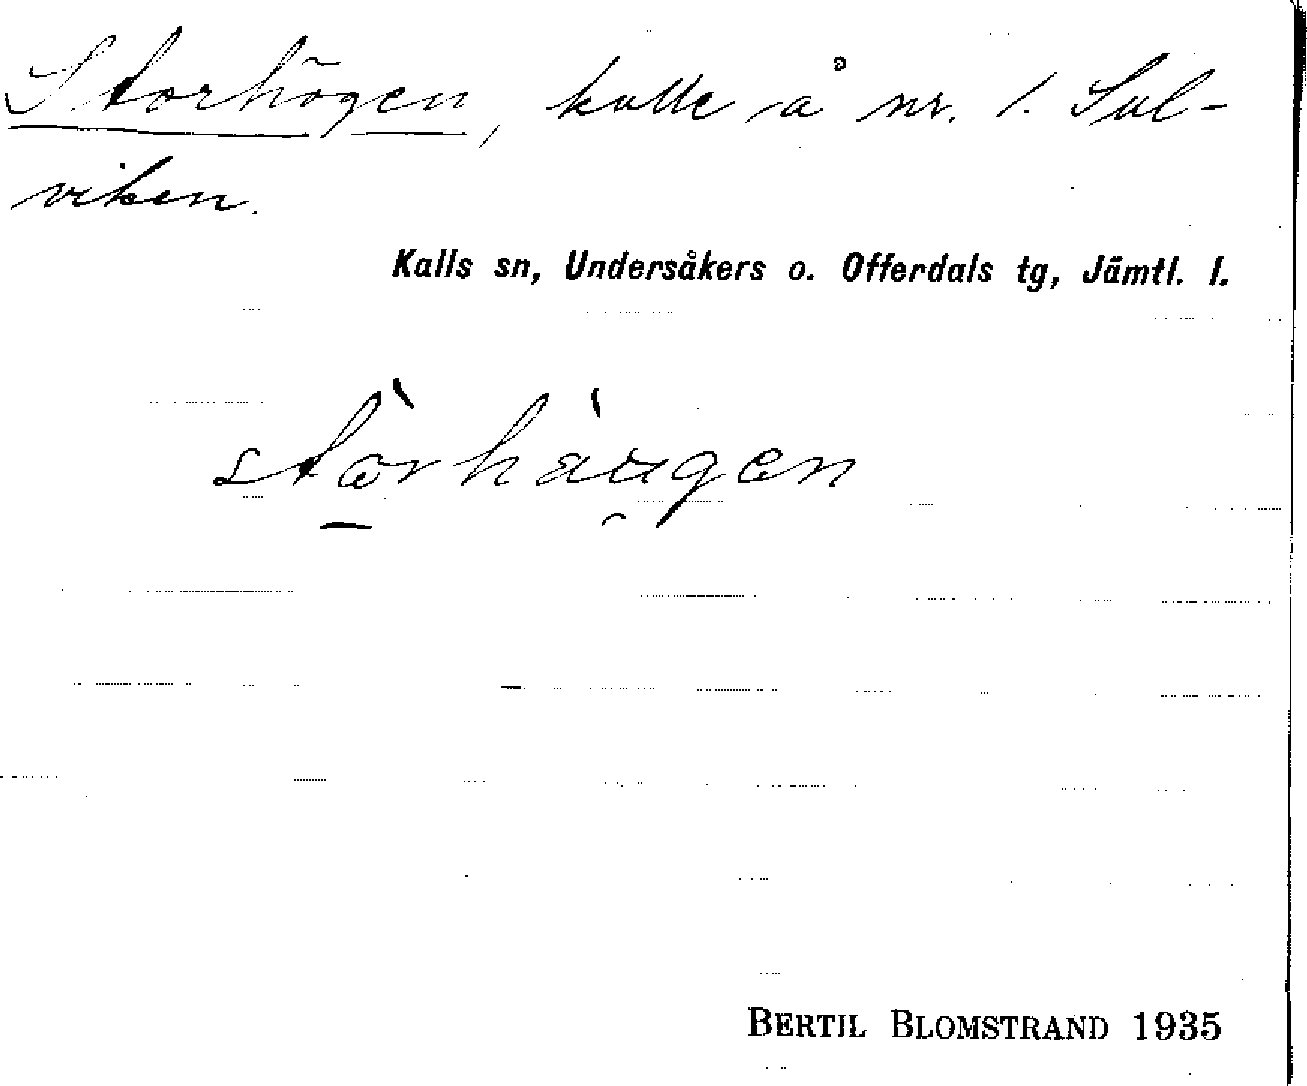 Storhögen, kulle å nr. 1. Sul-
viken.
Kalls sn, Undersåkers o. Offerdals tg, Jämtl. l.
stàrhàugen
BERTIL BLOMSTRAND 1935